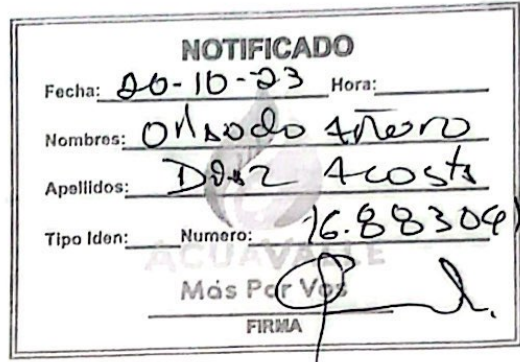 NOTIFICADO
Fecha: 20-10-23 Hora:
Nombres: Orlando
Apellidos: Díaz Acosta
Tipo Iden: Numero: 16.88304
ACUAVALLE
Más Por Vos
FIRMA